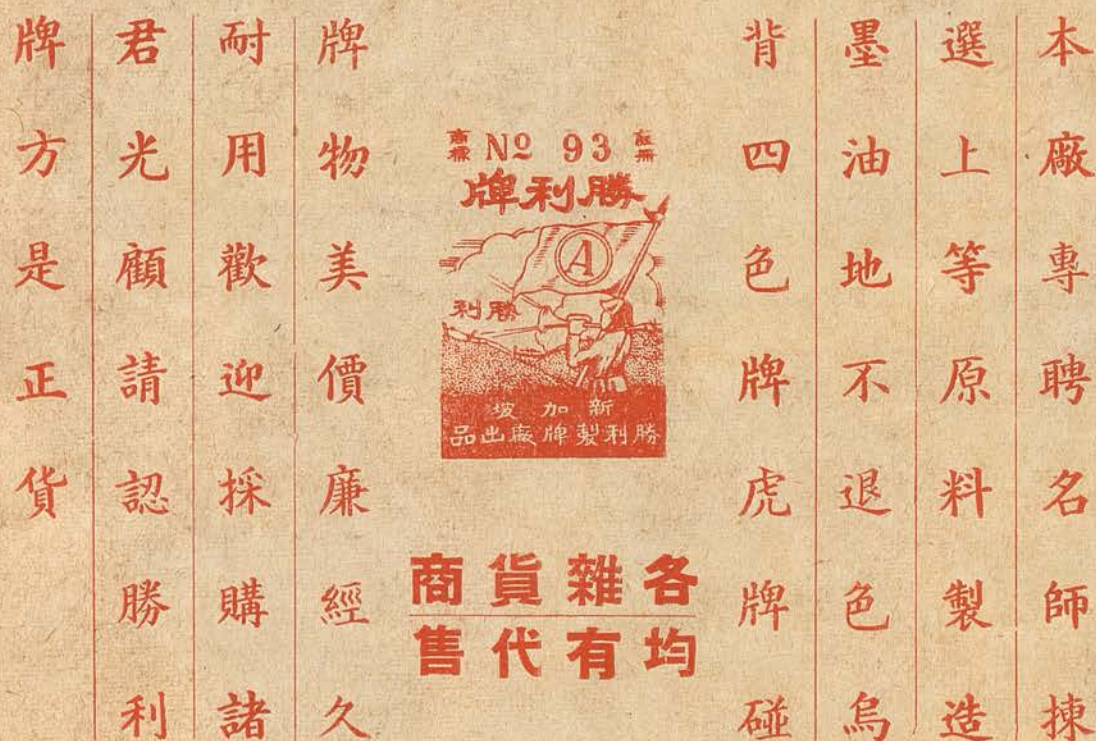 本廠專聘名師揀
選上等原料製造
墨油地不退色烏
背四色牌虎牌碰
商標 Nº 93 註冊
勝利牌
A
勝利
新加坡
勝利製牌廠出品
各雜貨商
均有代售
牌物美價廉經久
耐用歡迎採購諸
君光顧請認勝利
牌方是正貨